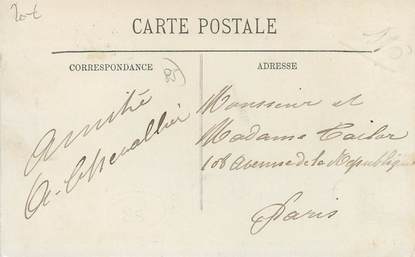 20€
CARTE POSTALE
CORRESPONDANCE
ADRESSE
Amitié
A. Chevallier
Monsieur et
Madame Tailor
108 Avenue de la République
Paris